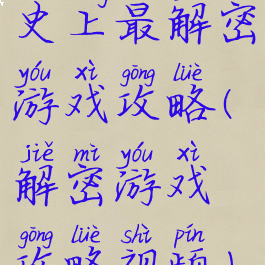 史上最解密
yóu xì gōng lüè
游戏攻略(
jiě mì yóu xì
解密游戏
gōng lüè shì pín
攻略视频)